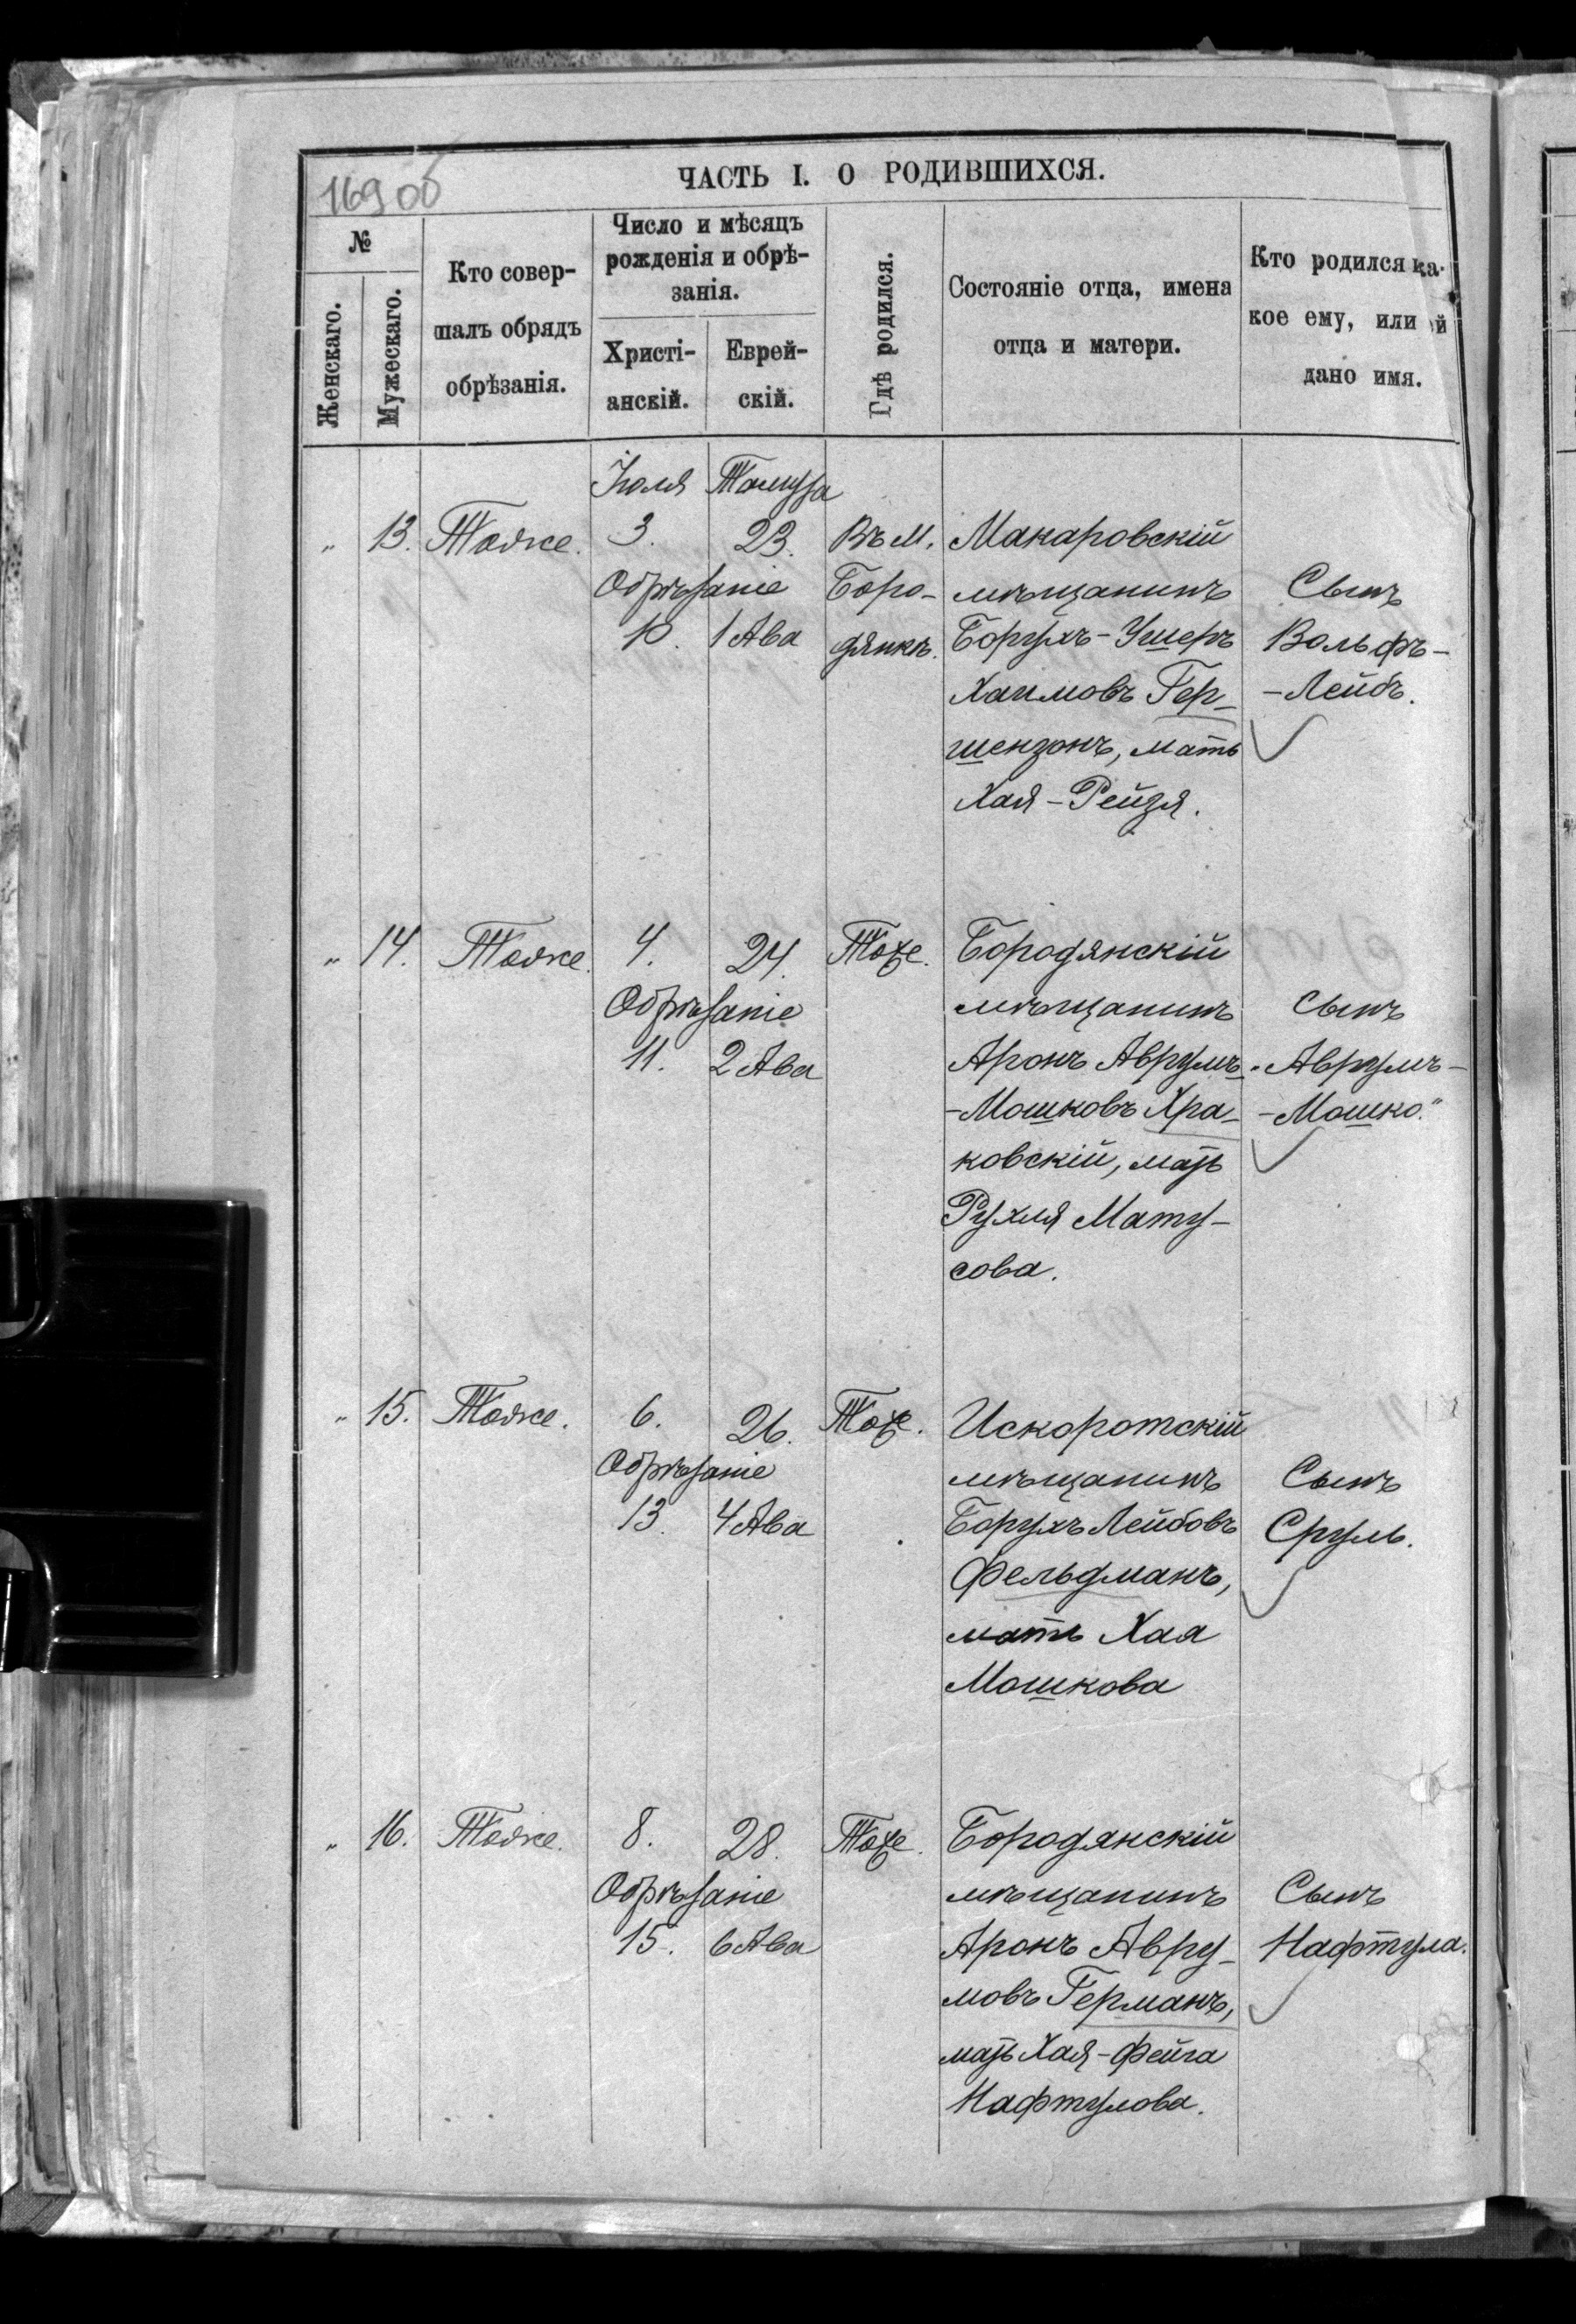 169 об
ЧАСТЬ I. О РОДИВШИХСЯ.
№
Женскаго.
Мужескаго.
Кто совер-
шалъ обрядъ
обрѣзанія.
Число и мѣсяцъ
рожденія и обрѣ-
занія.
Христі-
анскій.
Еврей-
скій.
Гдѣ родился.
Состояніе отца, имена
отца и матери.
Кто родился ка-
кое ему, или й
дано имя.
Іюля Тамуза
„ 13. Тоже. 3. 23. Въ м. Макаровскій
Обрѣзаніе Боро- мѣщанинъ Сынъ
10. 1 Ава дянкѣ. Борухъ-Ушеръ Вольфъ-
Хаимовъ Гер- -Лейбъ.
шензонъ, мать
Хая-Рейзя.
„ 14. Тоже. 4. 24. Тоже. Бородянскій
Обрѣзаніе мѣщанинъ сынъ
11. 2 Ава Аронъ Аврумъ- „Аврумъ-
-Мошковъ Хра- -Мошко."
ковскій, мать
Рухля Мату-
сова.
„ 15. Тоже. 6. 26. Тоже. Искоротскій
Обрѣзаніе мѣщанинъ Сынъ
13. 4 Ава Борухъ Лейбовъ Сруль.
Фельдманъ,
мать Хая
Мошкова
„ 16. Тоже. 8. 28. Тоже. Бородянскій
Обрѣзаніе мѣщанинъ Сынъ
15. 6 Ава Аронъ Авру- Нафтула.
мовъ Германъ,
мать Хая-Фейга
Нафтулова.